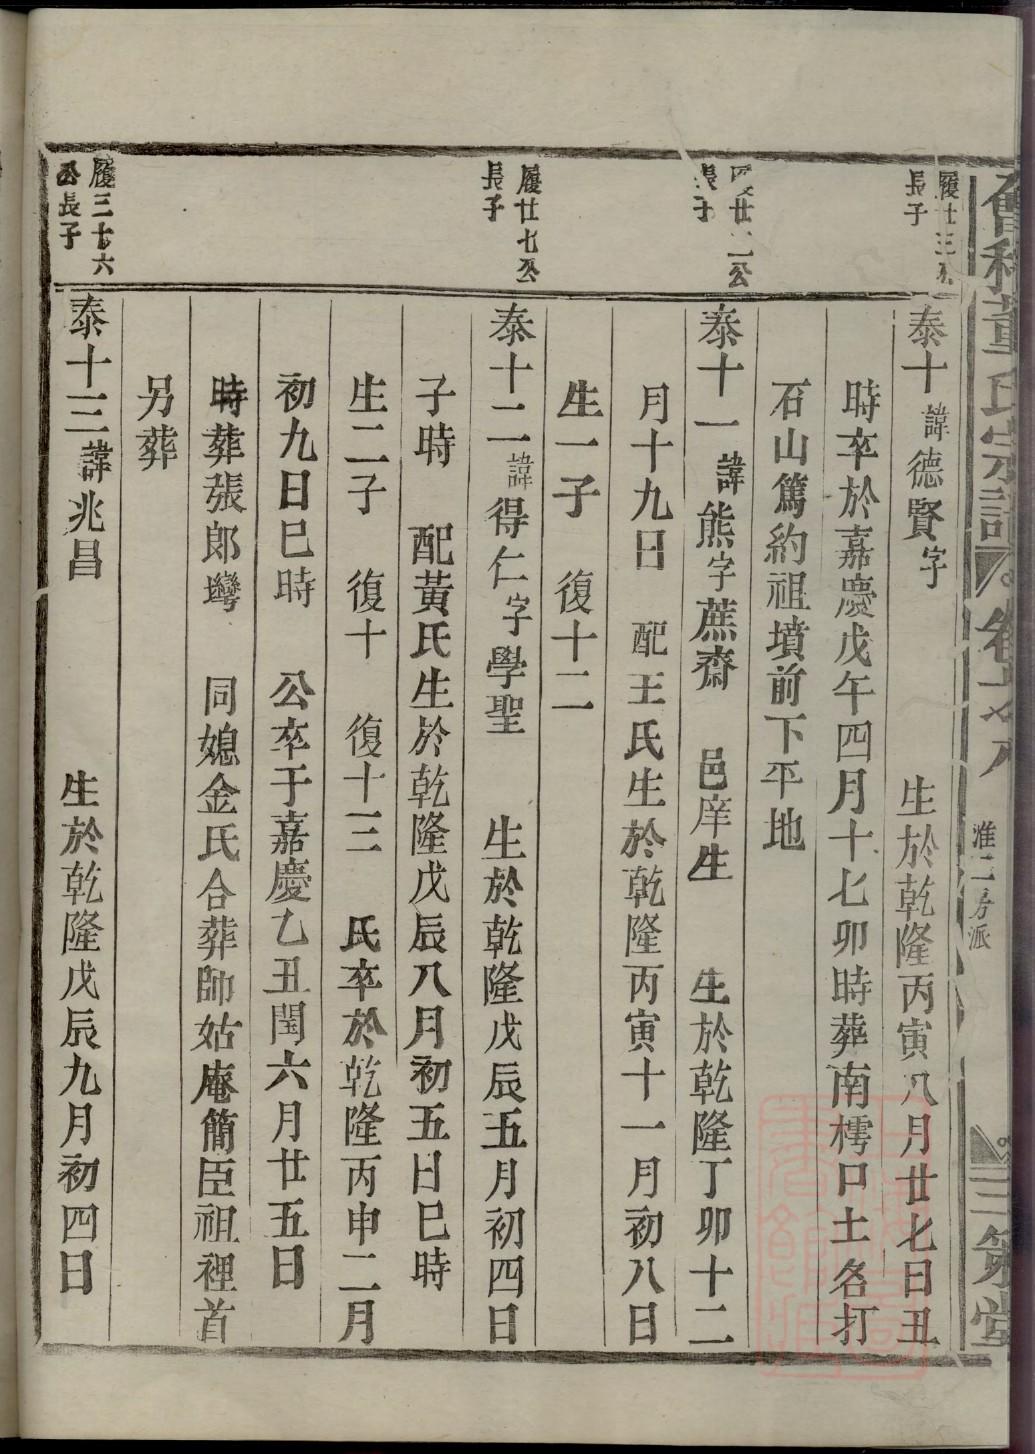 董氏宗譜
淮二房派
三策堂
履廿三公
長子
泰十諱德賢字 生於乾隆丙寅八月廿七日丑
時卒於嘉慶戊午四月十七卯時葬南樗口土名打
石山篤約祖墳前下平地
廿二公
長子
泰十一諱熊字蔗齋 邑庠生 生於乾隆丁卯十二
月十九日 配王氏生於乾隆丙寅十一月初八日
生一子 復十二
履廿七公
長子
泰十二諱得仁字學聖 生於乾隆戊辰五月初四日
子時 配黃氏生於乾隆戊辰八月初五日巳時
生二子 復十 復十三 氏卒於乾隆丙申二月
初九日巳時 公卒于嘉慶乙丑閏六月廿五日
時葬張郎灣 同媳金氏合葬師姑庵簡臣祖裡首
另葬
履三十六
公長子
泰十三諱兆昌 生於乾隆戊辰九月初四日